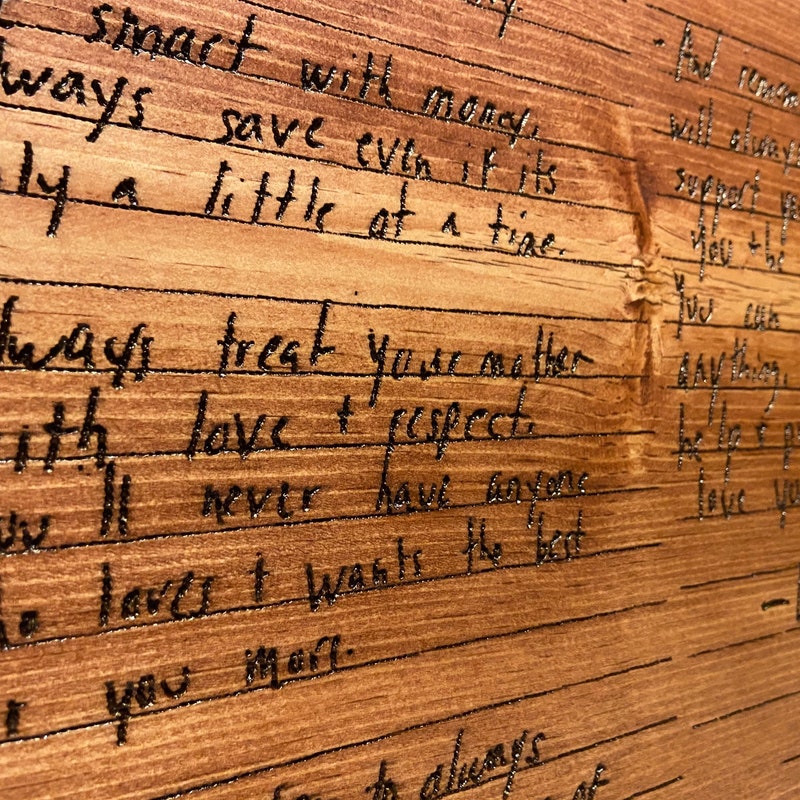 smart with money.
ways save even if its
ly a little at a time.
ways treat your mother
ith love + respect.
'll never have anyone
loves + wants the best
r you more.
to always
at
- And remem
will always
support yo
you + b
You can
anything.
help + p
love you